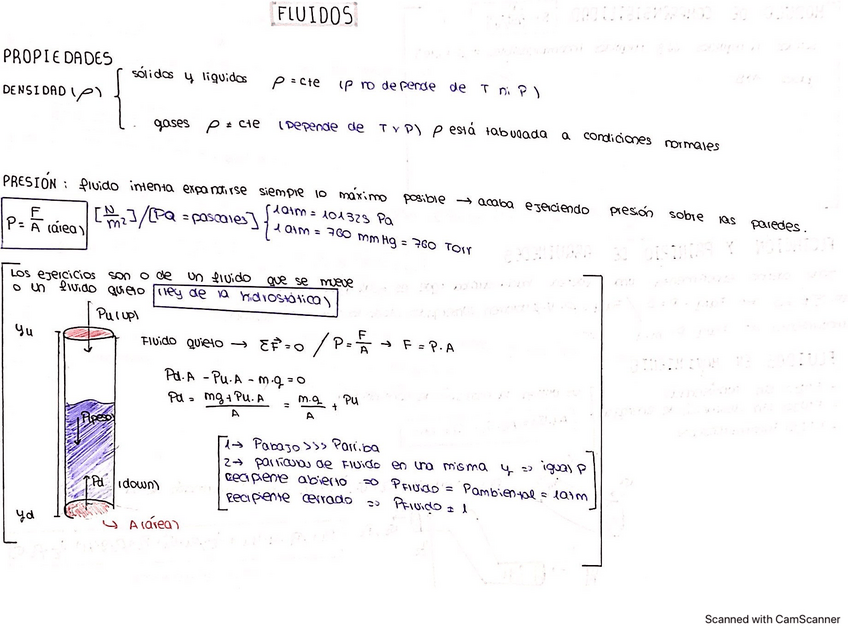 FLUIDOS
PROPIEDADES
DENSIDAD (ρ)
sólidos y líquidos ρ = cte (ρ no depende de T ni P)
gases ρ ≠ cte (Depende de T y P) ρ está tabulada a condiciones normales
PRESIÓN: fluido intenta expandirse siempre lo máximo posible → acaba ejerciendo presión sobre las paredes.
P = F/A (área) [N/m²] / [Pa = pascales]
1 atm = 101325 Pa
1 atm = 760 mmHg = 760 Torr
Los ejercicios son o de un fluido que se mueve
o un fluido quieto (ley de la hidrostática)
Pu (up)
yu
Fluido quieto → ΣF⃗ = 0 / P = F/A → F = P·A
Pd·A - Pu·A - m·g = 0
Pd = (mg + Pu·A)/A = m·g/A + Pu
P(peso)
1→ Pabajo >>> Parriba
2→ partículas de fluido en una misma y => igual P
Recipiente abierto => PFluido = Pambiental = 1atm
Recipiente cerrado => PFluido ≠ 1
Pd (down)
yd
↳ A (área)
Scanned with CamScanner